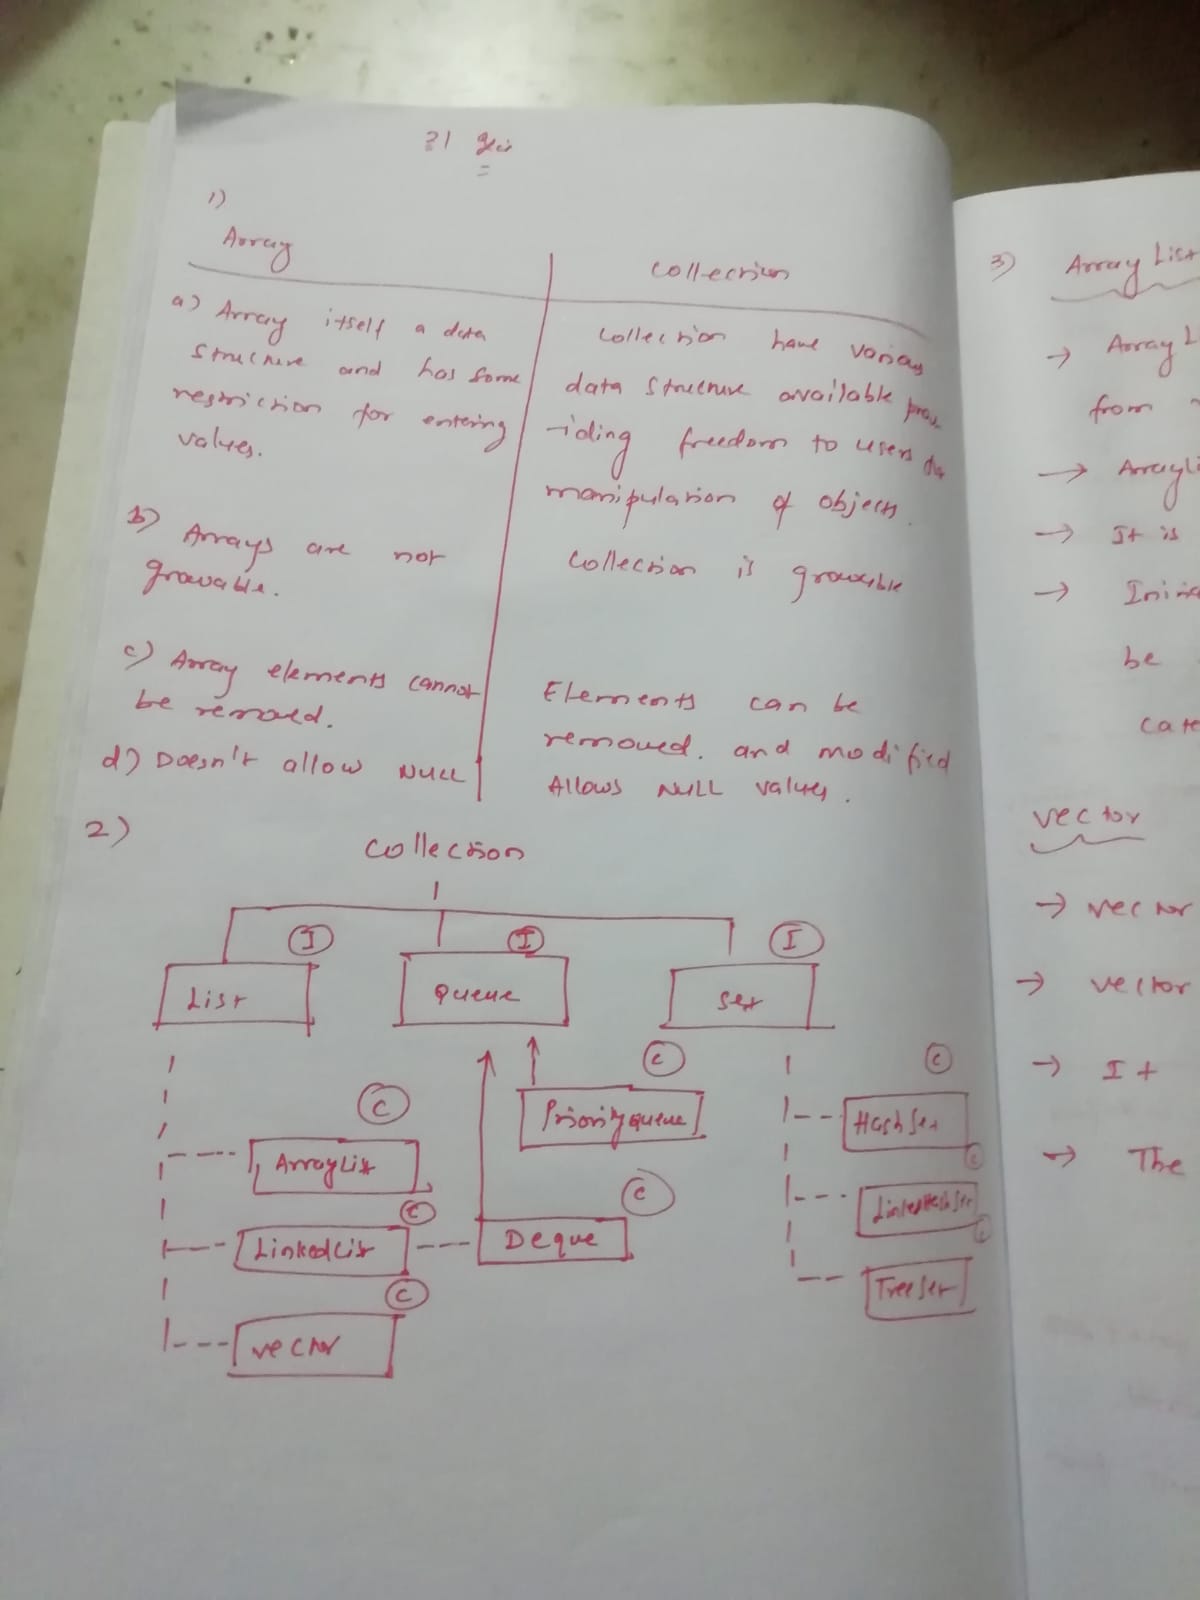 31
1)
Array
Collection
a) Array itself a data
structure and has some
restriction for entering
values.
Collection have various
data structure available prov
-iding freedom to users
manipulation of objects.
b) Arrays are not
growable.
Collection is growable
c) Array elements cannot
be removed.
Elements can be
removed. and modified
d) Doesn't allow NULL
Allows NULL values.
2)
Collection
I
I
I
List
Queue
Set
C
C
C
ArrayList
PriorityQueue
HashSet
C
C
C
LinkedList
Deque
LinkedHashSet
C
C
Vector
TreeSet
3) Array List
→ Array L
from
→ ArrayLi
→ It is
→ Initia
be
cate
Vector
→ vector
→ vector
→ It
→ The